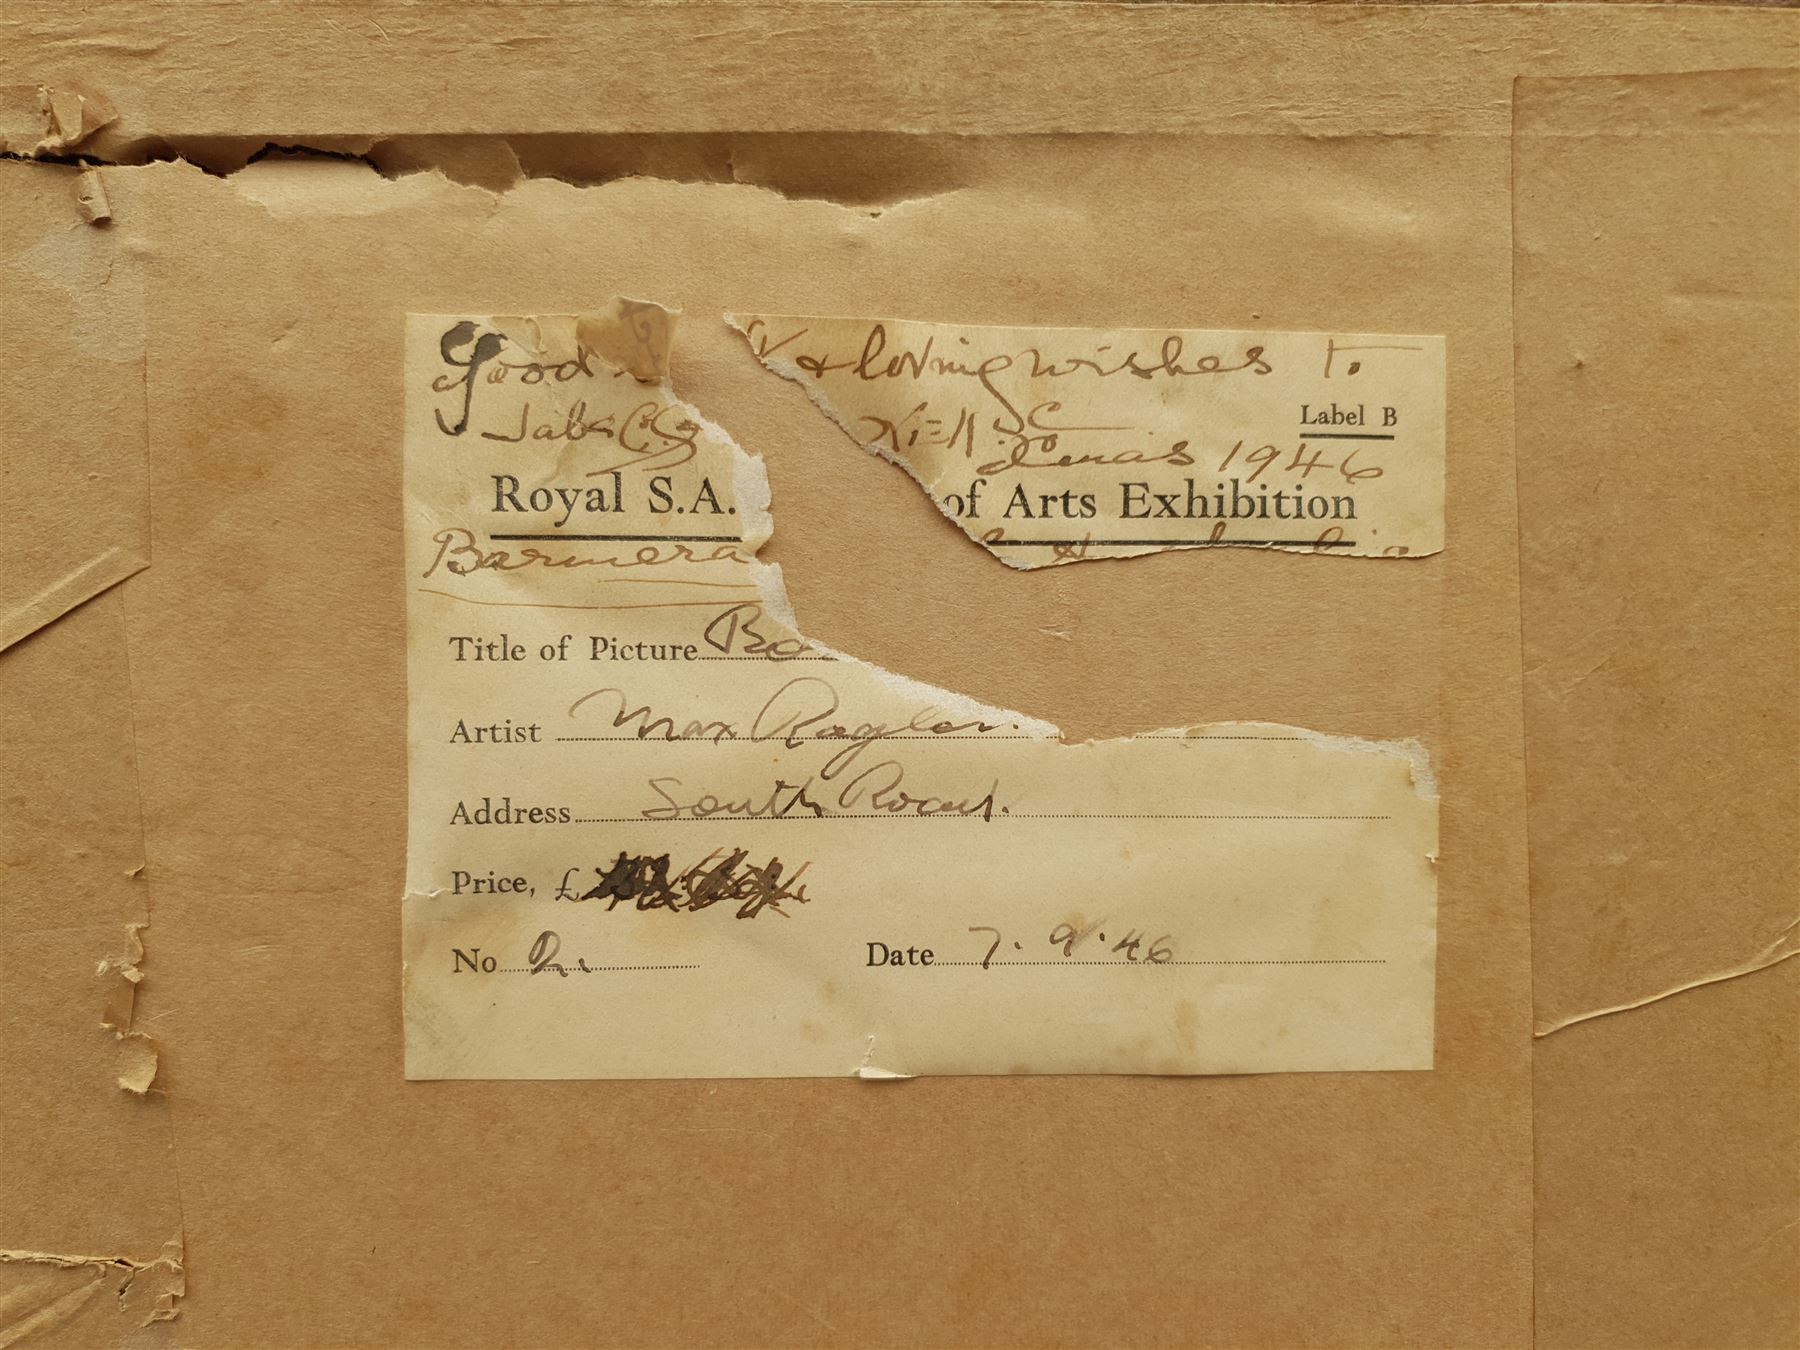 Good & loving wishes to
Label B
Xmas 1946
Royal S.A. of Arts Exhibition
Barmera
Title of Picture
Artist Max Ragless.
Address South Road.
Price, £
No 2. Date 7.9.46